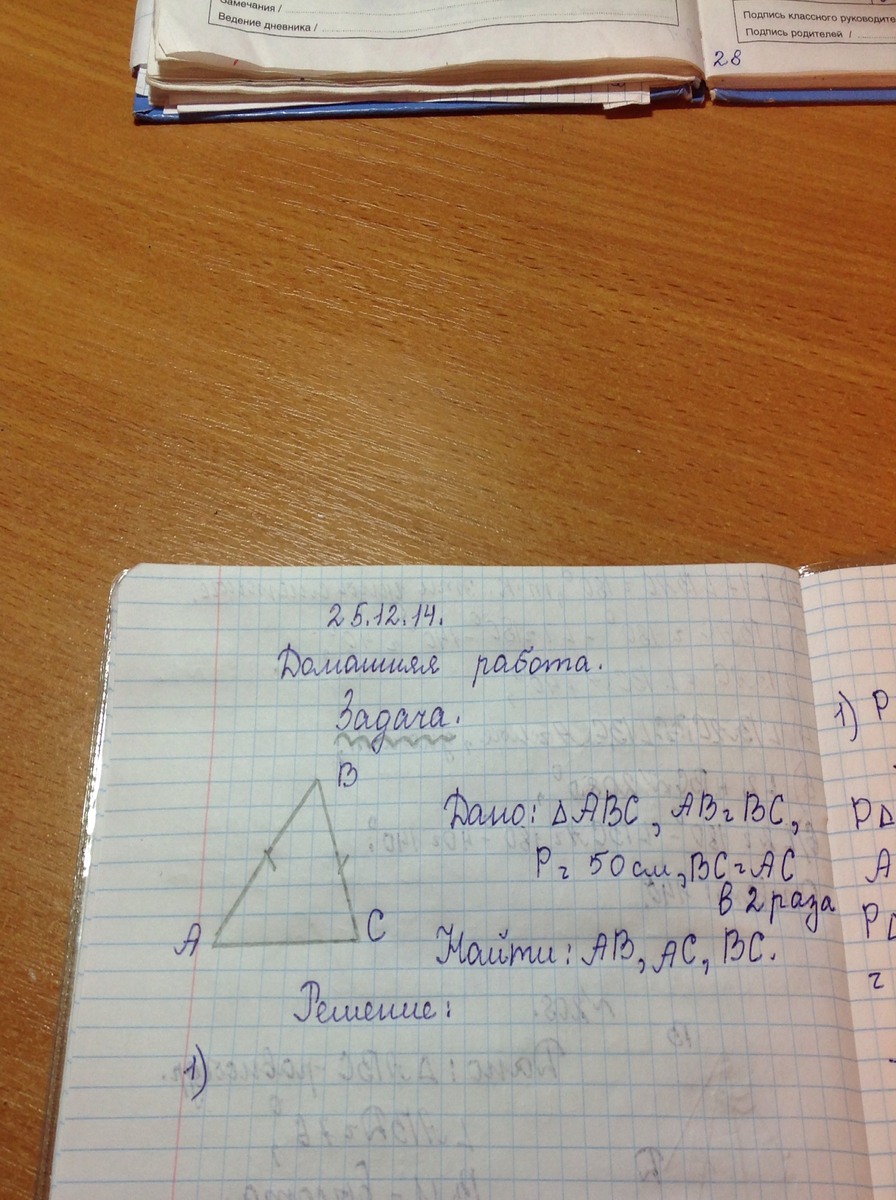 Замечания /
Ведение дневника /
Подпись классного
Подпись родителей /
28
25.12.14.
Домашняя работа.
Задача.
B
A
C
Дано: △ABC, AB = BC,
P = 50 см, BC = AC
в 2 раза
Найти: AB, AC, BC.
Решение:
1)
1) P
P△
A
P△
=